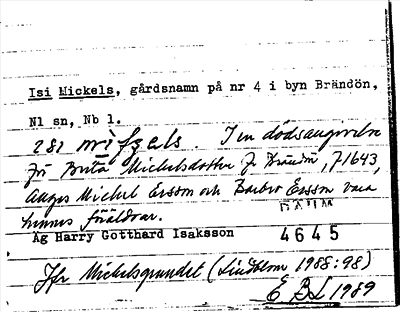 Isi Mickels, gårdsnamn på nr 4 i byn Brändön,
Nl sn, Nb l.
I en dödsangivelse
för Brita Michelsdotter f. Brändön, f 1643,
anges Michel Ersson och Barbro Ersson vara
hennes föräldrar.
Äg Harry Gotthard Isaksson
4645
Jfr Mickelsgrundet (Lindblom 1988:98)
E BL 1989